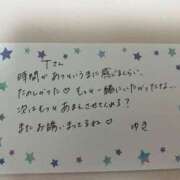 Tさん
時間があっというまに感じるくらい、
たのしかった♡ もっと一緒にいたかったなー。
次はもっとあまえさせてんれる?
またお誘いまってるね♡ ゆき